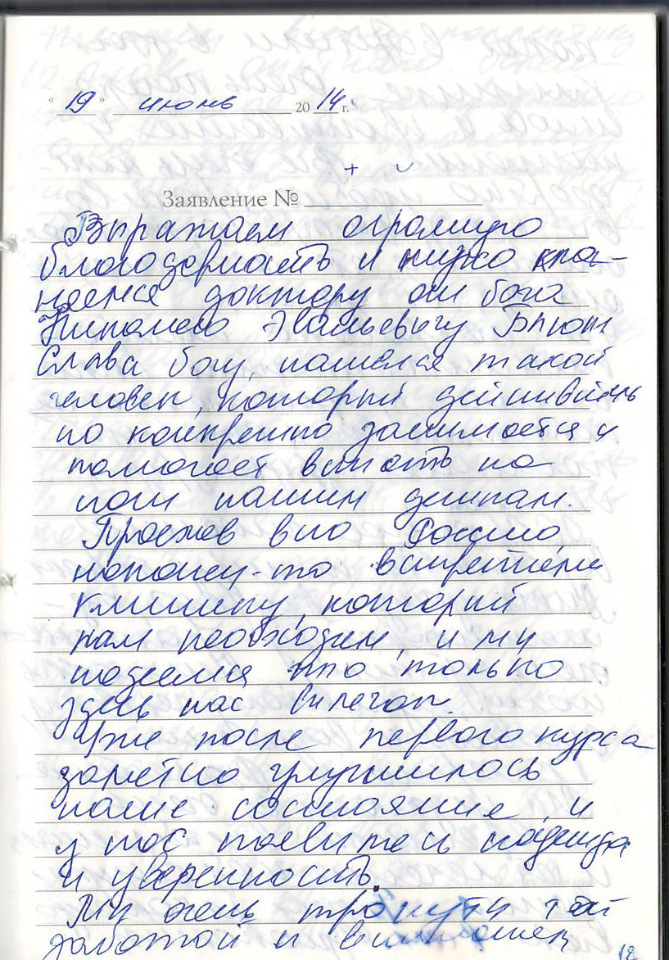 "19" июнь 2014 г.
+
Заявление №
Выражаем огромную
благодарность и низко кла-
няемся доктору от бога
Слава богу, нашелся такой
человек, который действитель
но конкретно занимается и
помогает встать на
ноги нашим деткам.
Проехав всю Россию,
наконец-то встретили
клинику, который
нам необходим, и мы
надеемся что только
здесь нас вылечат.
Уже после первого курса
заметно улучшилось
наше состояние, и
у нас появилась надежда
и уверенность.
Мы очень тронуты той
заботой и
12